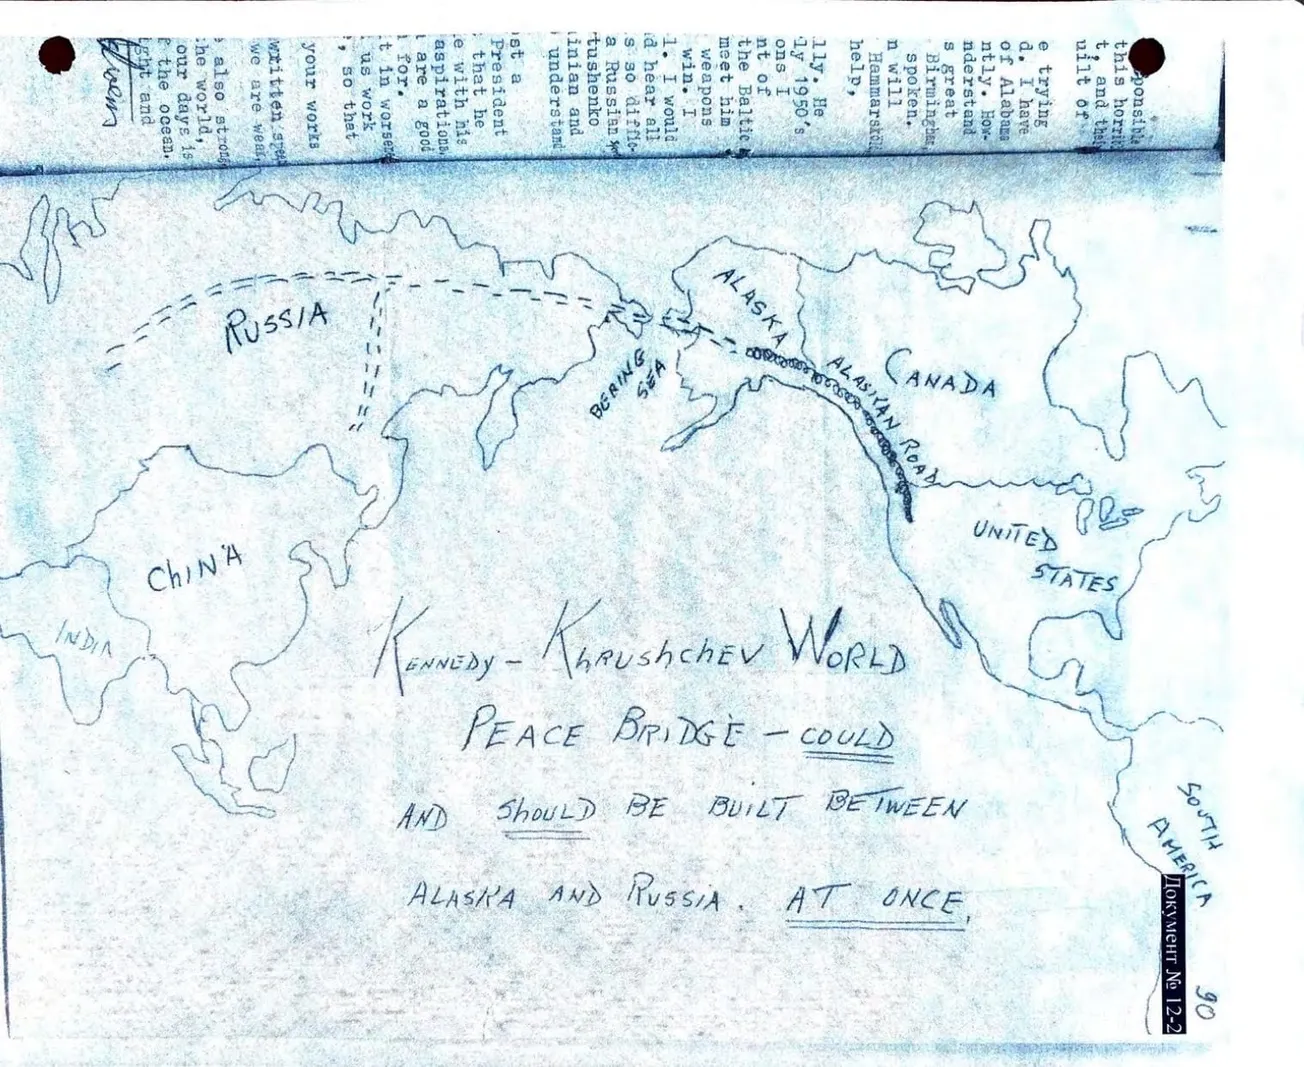 ponsible
this horri
t, and tha
uilt of
e trying
d. I have
of Alabama
ntly. How-
nderstand
s great
Birmingham,
spoken.
n will
Hammarsköld
help,
lly. He
ly 1950's
ons I
nt of
the Baltic
meet him
weapons
win. I
l. I would
d hear all
s so diffic-
a Russian
tushenko
inian and
understand
st a
President
that he
e with his
aspirations
are a good
for.
t in worsen
us work
, so that
your works
written spe
we are weak,
also stron
he world,
our days is
f the ocean.
ight and
RUSSIA
ALASKA
BERING
SEA
ALASKAN ROAD
CANADA
UNITED
STATES
CHINA
INDIA
KENNEDY - KHRUSHCHEV WORLD
PEACE BRIDGE - COULD
AND SHOULD BE BUILT BETWEEN
ALASKA AND RUSSIA. AT ONCE.
SOUTH
AMERICA
Документ № 12-2
90